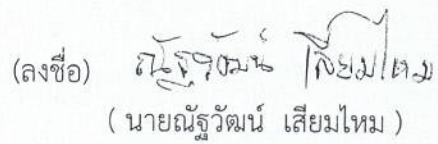 (ลงชื่อ) ณัฐวัฒน์ เสียมไหม
( นายณัฐวัฒน์ เสียมไหม )